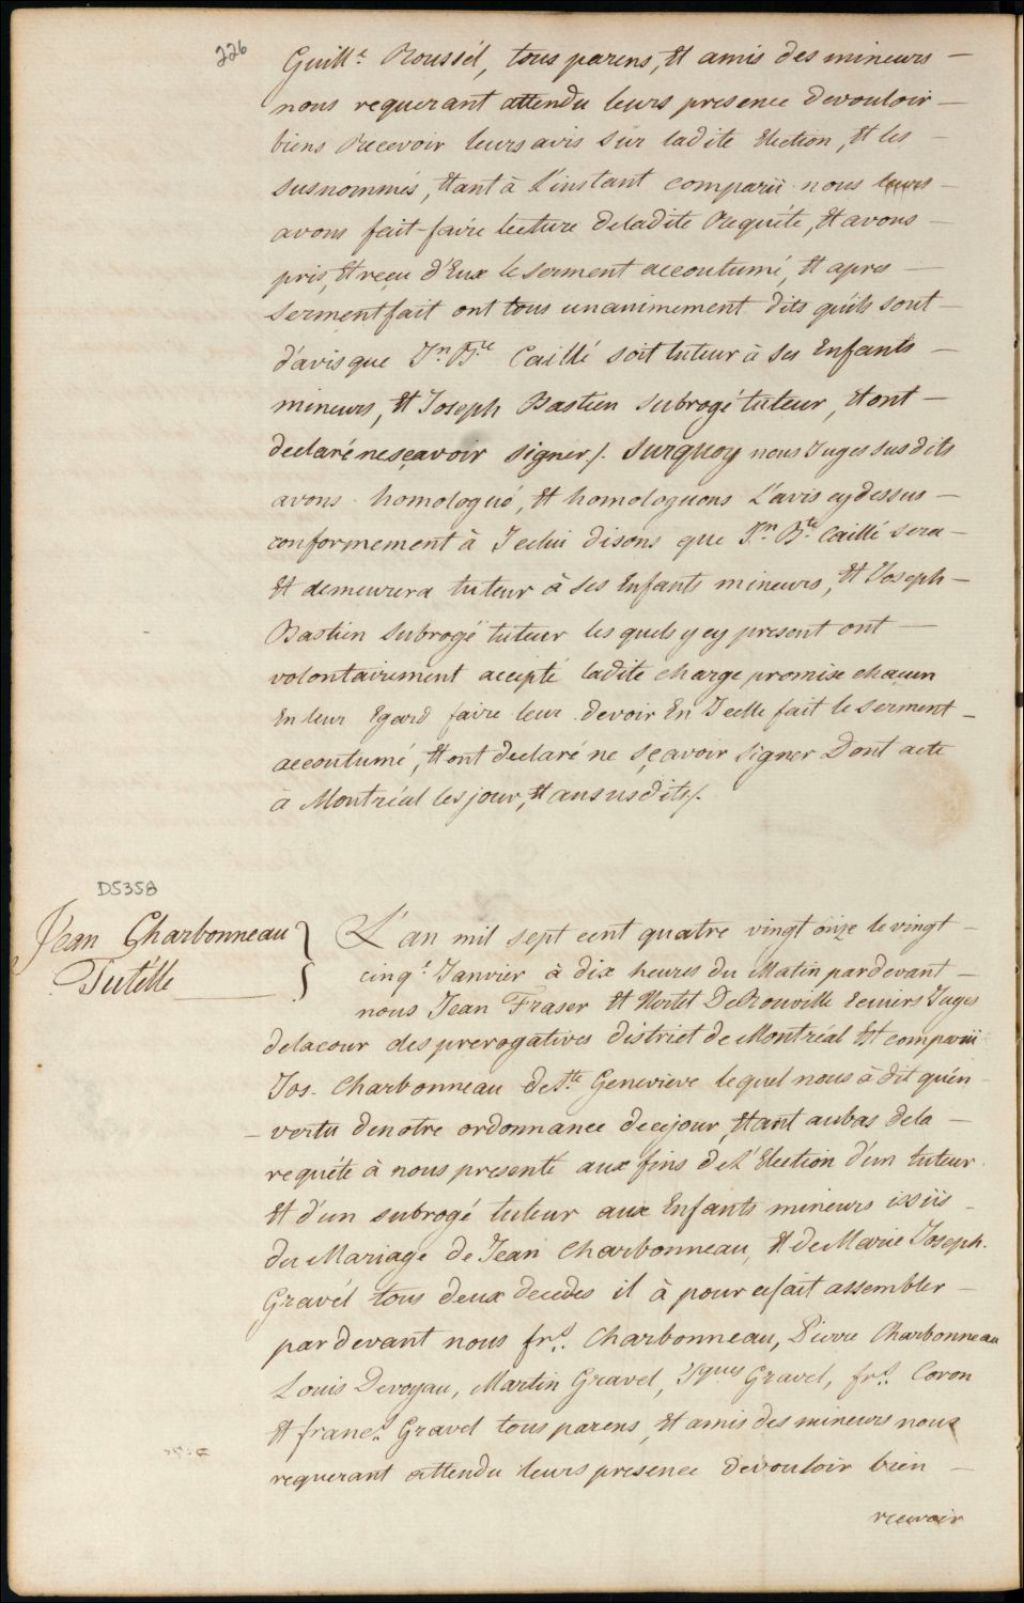 226
Guill.e Roussél, tous parens, Et amis des mineurs —
nous requerant attendu leurs presence devouloir —
biens Recevoir leurs avis sur ladite Election, Et les —
susnommés, Etant à L'instant comparü nous leurs —
avons fait faire lecture deladite Requéte, Et avons —
pris, Et reçu d'Eux le serment accoutumé, Et apres —
serment fait ont tous unanimement dits qu'ils sont —
d'avis que Jn Bte Caillé soit tuteur à ses Enfants —
mineurs, Et Joseph Bastien subrogé tuteur, Et ont —
declaré nesçavoir signer /. surquoy nous Juges susdits
avons homologué, Et homologuons L'avis cydessus —
conformement à Jcelui disons que Jn Bte Caillé sera —
Et demeurera tuteur à ses Enfants mineurs, Et Joseph —
Bastien subrogé tuteur les quels y cy present ont —
volontairement accepté ladite charge promise chacun
En leur Egard faire leur devoir En Jcelle fait le serment —
accoutumé, Et ont declaré ne sçavoir signer Dont acte
à Montréal les jour, Et an susdits /.
D5358
Jean Charbonneau
Tutélle
L'an mil sept cent quatre vingt onze le vingt —
cinq.e Janvier à dix heures du Matin pardevant —
nous Jean Fraser Et Hertel DeRouville Ecuiers Juges
delacour des prerogatives district de Montréal Est comparü
Jos. Charbonneau de Ste Genevieve lequel nous à dit qu'en
— vertu denotre ordonnance decejour, Etant aubas dela —
requéte à nous presenté aux fins de L'Election d'un tuteur
Et d'un subrogé tuteur aux Enfants mineurs issüs —
du Mariage de Jean Charbonneau, Et de Marie Joseph.
Gravél tous deux decedés il à pour ce fait assembler —
par devant nous frs. Charbonneau, Pierre Charbonneau
Louis Devoyau, Martin Gravel, Jques Gravel, frs. Coron
Et francs. Gravel tous parens, Et amis des mineurs nous
requerant attendu leurs presence devouloir bien —
recevoir